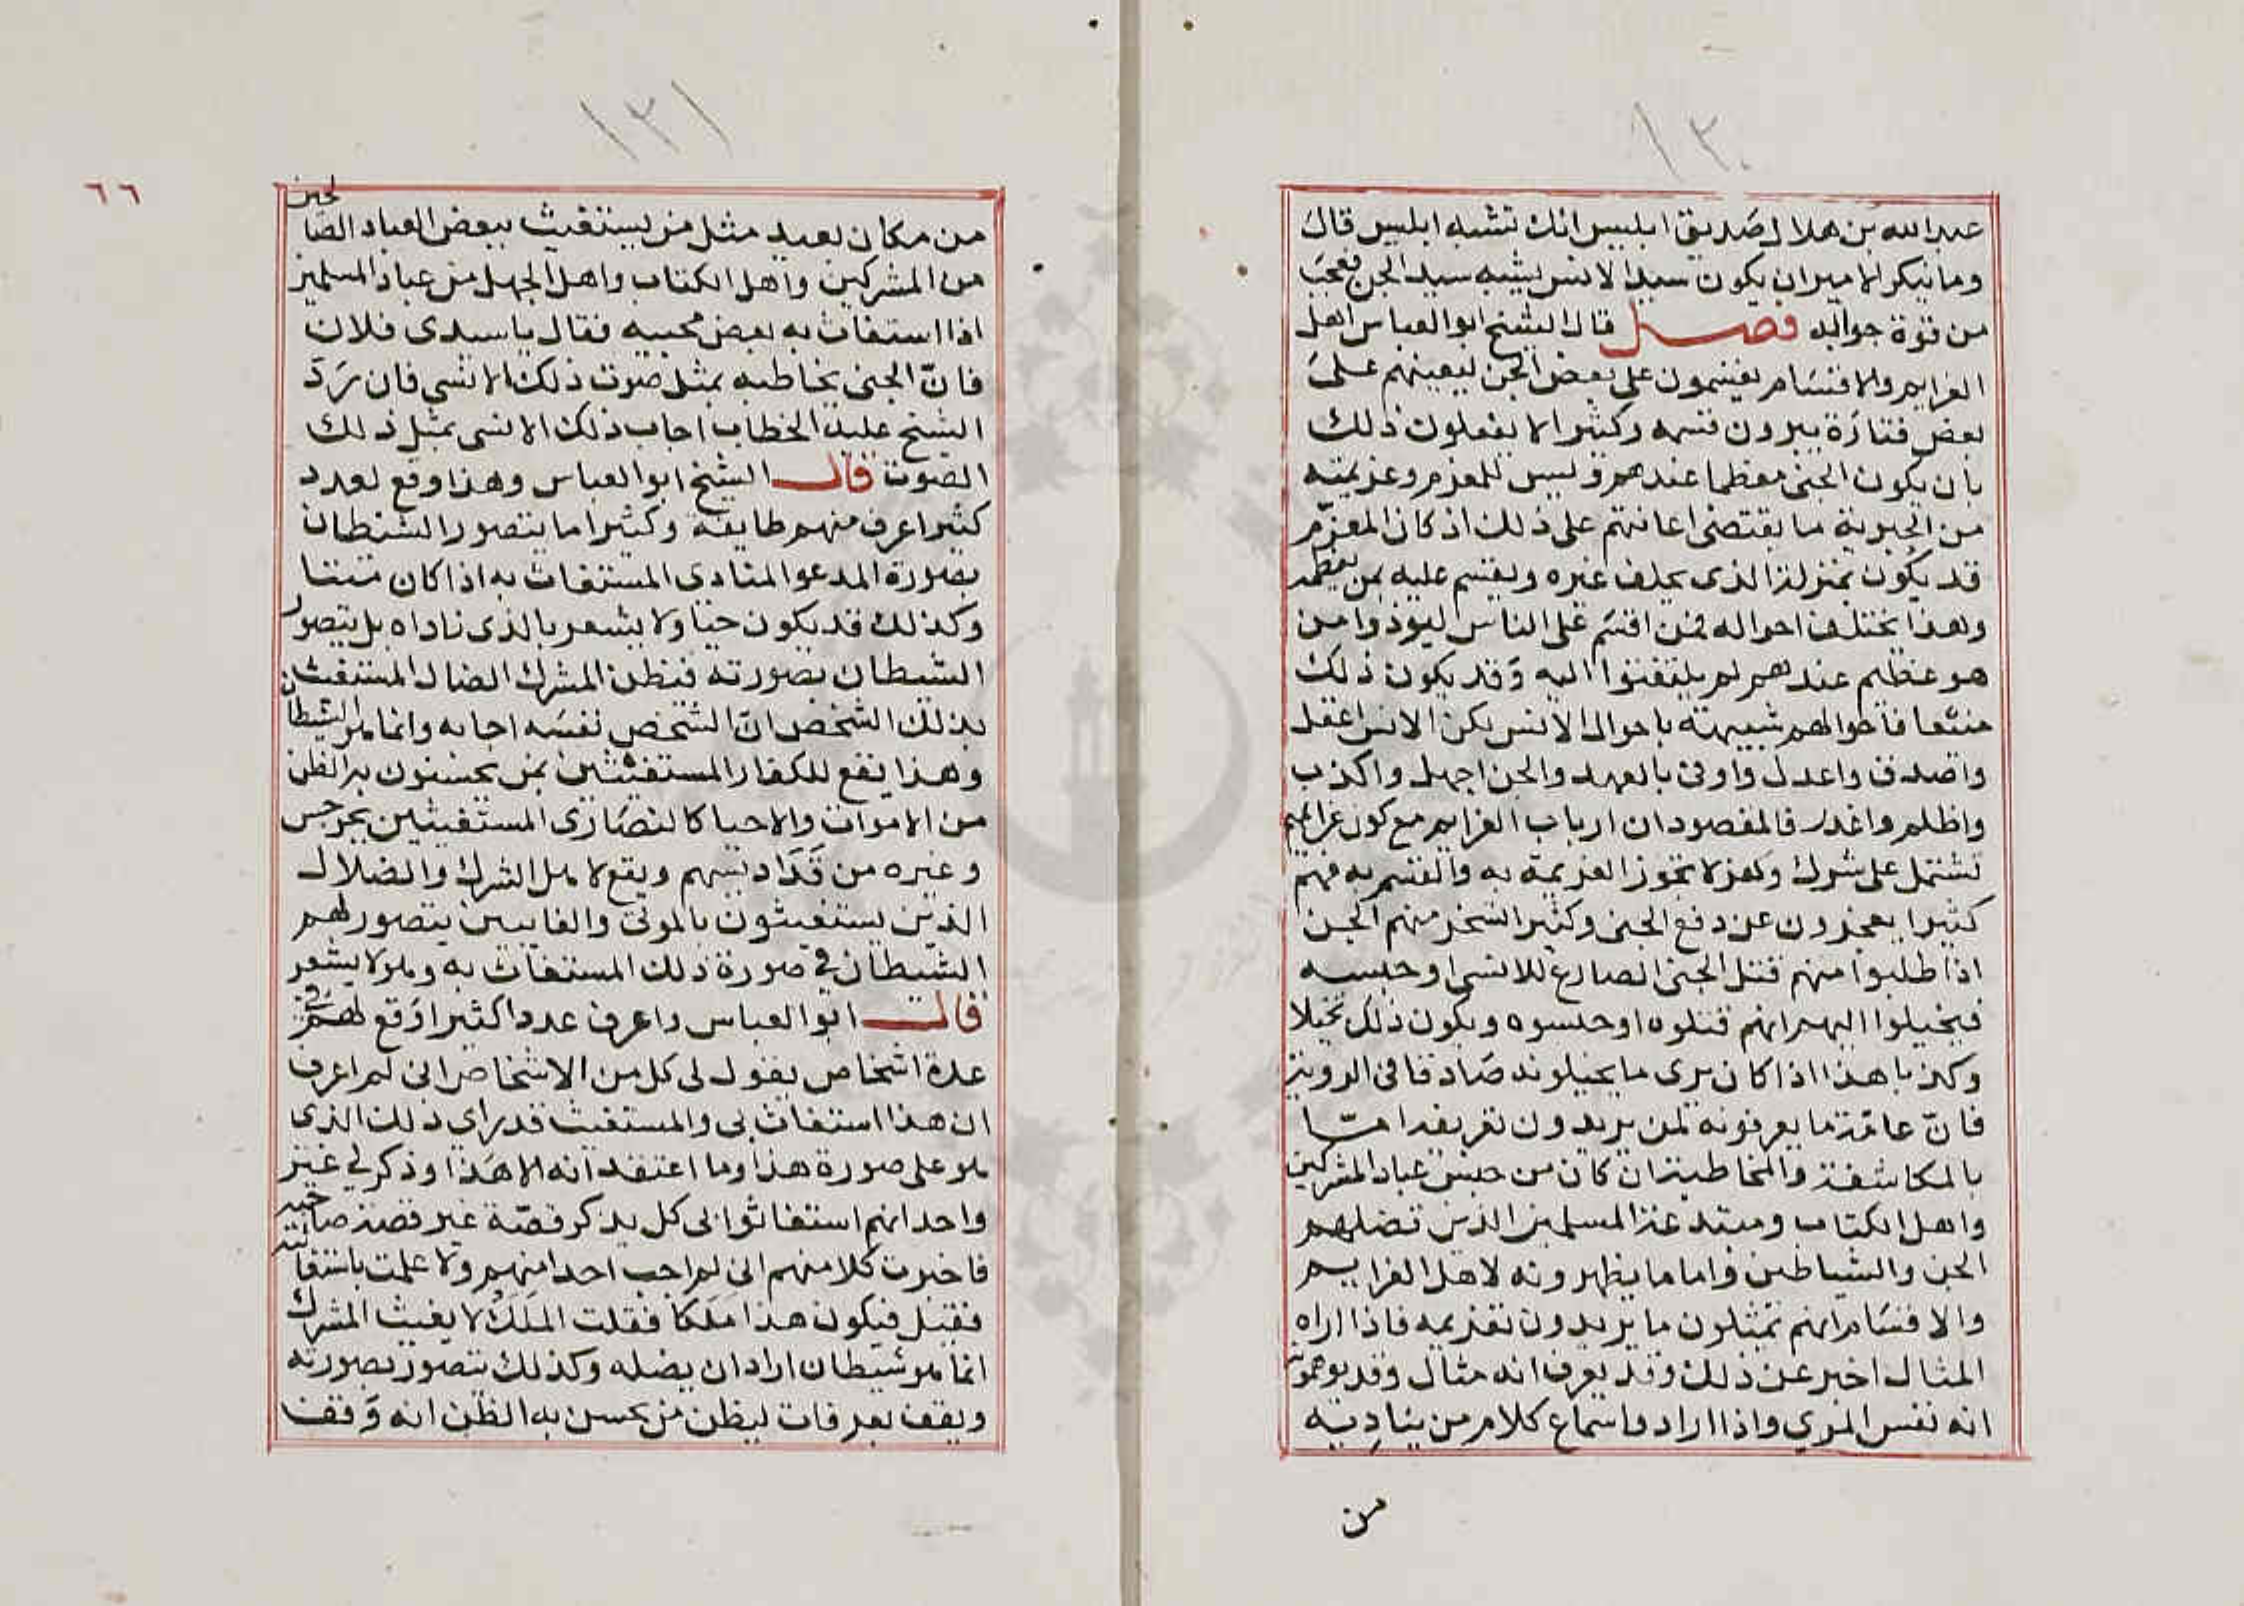 ١٣٠
عبدالله بن هلال صديق ابليس انك تشبه ابليس قال
وما ينكر الامير ان يكون سيد الانس يشبه سيد الجن فعجب
من قوة جوابه فصل قال الشيخ ابو العباس اهل
العزايم والاقسام يقسمون على بعض الجن ليعينهم على
بعض فتارة يبرون قسمه وكثيرا لا يفعلون ذلك
بان يكون الجنى معظما عندهم وليس للمعزم وعزيمته
من الحرمة ما يقتضى اعانتهم على ذلك اذ كان المعزم
قد يكون بمنزلة الذى يحلف غيره ويقسم عليه بمن يعظمه
وهذا تختلف احواله فمن اقسم على الناس ليوذوا من
هو عظيم عندهم لم يلتفتوا اليه وقد يكون ذلك
منيعا فاحوالهم شبيهة باحوال الانس لكن الانس اعقل
واصدق واعدل واوفى بالعهد والجن اجهل واكذب
واظلم واغدر فالمقصود ان ارباب العزايم مع كون عزايمهم
تشتمل على شرك وكفر لا تجوز العزيمة به والقسم به فهم
كثيرا يعجزون عن دفع الجنى وكثيرا تسخر منهم الجن
اذا طلبوا منهم قتل الجنى الصارع للانسى او حبسه
فيخيلوا اليهم انهم قتلوه او حبسوه ويكون ذلك تخيلا
وكذبا هذا اذا كان يرى ما يخيلونه صادقا فى الروية
فان عامة ما يعرفونه لمن يريدون تعريفه اما
بالمكاشفة والمخاطبة ان كان من جنس عباد المشركين
واهل الكتاب ومبتدعة المسلمين الذين تضلهم
الجن والشياطين واما ما يظهرونه لاهل العزايم
والاقسام انهم يمثلون ما يريدون تعزيمه فاذا اراه
المثال اخبر عن ذلك وقد يعرف انه مثال وقد يوهموه
انه نفس المرى واذا ارادوا سماع كلام من يناديه
من
١٣١
٦٦
من مكان بعيد مثل من يستغيث ببعض العباد الصالحين
من المشركين واهل الكتاب واهل الجهل من عباد المسلمين
اذا استغاث به بعض محبيه فقال يا سيدى فلان
فان الجنى يخاطبه بمثل صوت ذلك الانسى فان رد
الشيخ عليه الخطاب اجاب ذلك الانسى بمثل ذلك
الصوت قال الشيخ ابو العباس وهذا وقع لعدد
كثير اعرف منهم طايفة وكثيرا ما يتصور الشيطان
بصورة المدعو المنادى المستغاث به اذا كان ميتا
وكذلك قد يكون حيا ولا يشعر بالذى ناداه بل يتصور
الشيطان بصورته فيظن المشرك الضال المستغيث
بذلك الشخص ان الشخص نفسه اجابه وانما هو الشيطان
وهذا يقع للكفار المستغيثين بمن يحسنون به الظن
من الاموات والاحيا كالنصارى المستغيثين بجرجس
وغيره من قداديسهم ويقع لاهل الشرك والضلال
الذين يستغيثون بالموتى والغايبين يتصور لهم
الشيطان فى صورة ذلك المستغاث به وهو لا يشعر
قال ابو العباس واعرف عددا كثيرا وقع لهم فى
عدة اشخاص يقول لى كل من الاشخاص انى لم اعرف
ان هذا استغاث بى والمستغيث قد راى ذلك الذى
هو على صورة هذا وما اعتقد انه الا هذا وذكر لى غير
واحد انهم استغاثوا بى كل يذكر قصة غير قصة صاحبه
فاخبرت كلا منهم انى لم اجب احدا منهم ولا علمت باستغاثته
فقيل فيكون هذا ملكا فقلت الملك لا يغيث المشرك
انما هو شيطان اراد ان يضله وكذلك يتصور بصورته
ويقف بعرفات ليظن من يحسن به الظن انه وقف